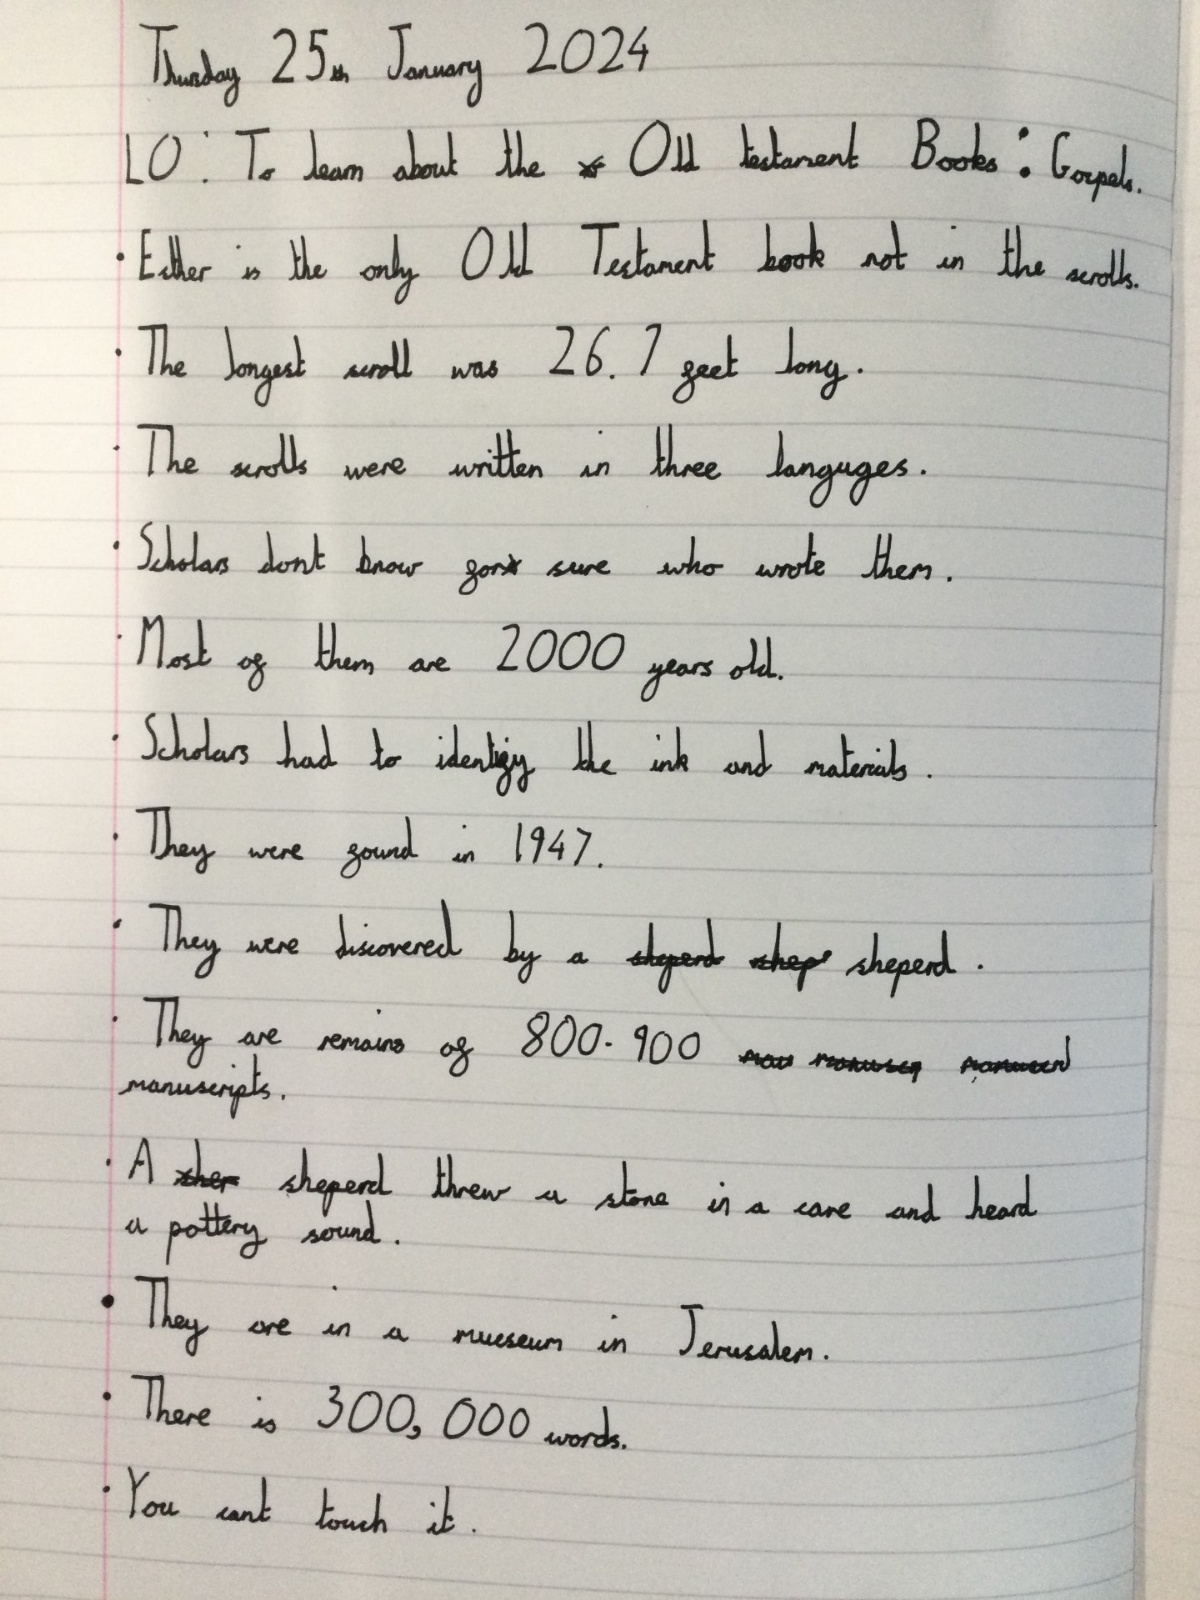 Thursday 25th January 2024
LO: To learn about the Old testament Books: Gospels.
• Esther is the only Old Testament book not in the scrolls.
• The longest scroll was 26.7 feet long.
• The scrolls were written in three languges.
• Scholars dont know for sure who wrote them.
• Most of them are 2000 years old.
• Scholars had to identify the ink and materials.
• They were found in 1947.
• They were discovered by a sheperd shep sheperd.
• They are remains of 800-900 mau manuscp manuscri
manuscripts.
• A sher sheperd threw a stone in a cave and heard
a pottery sound.
• They are in a mueseum in Jerusalem.
• There is 300,000 words.
• You cant touch it.